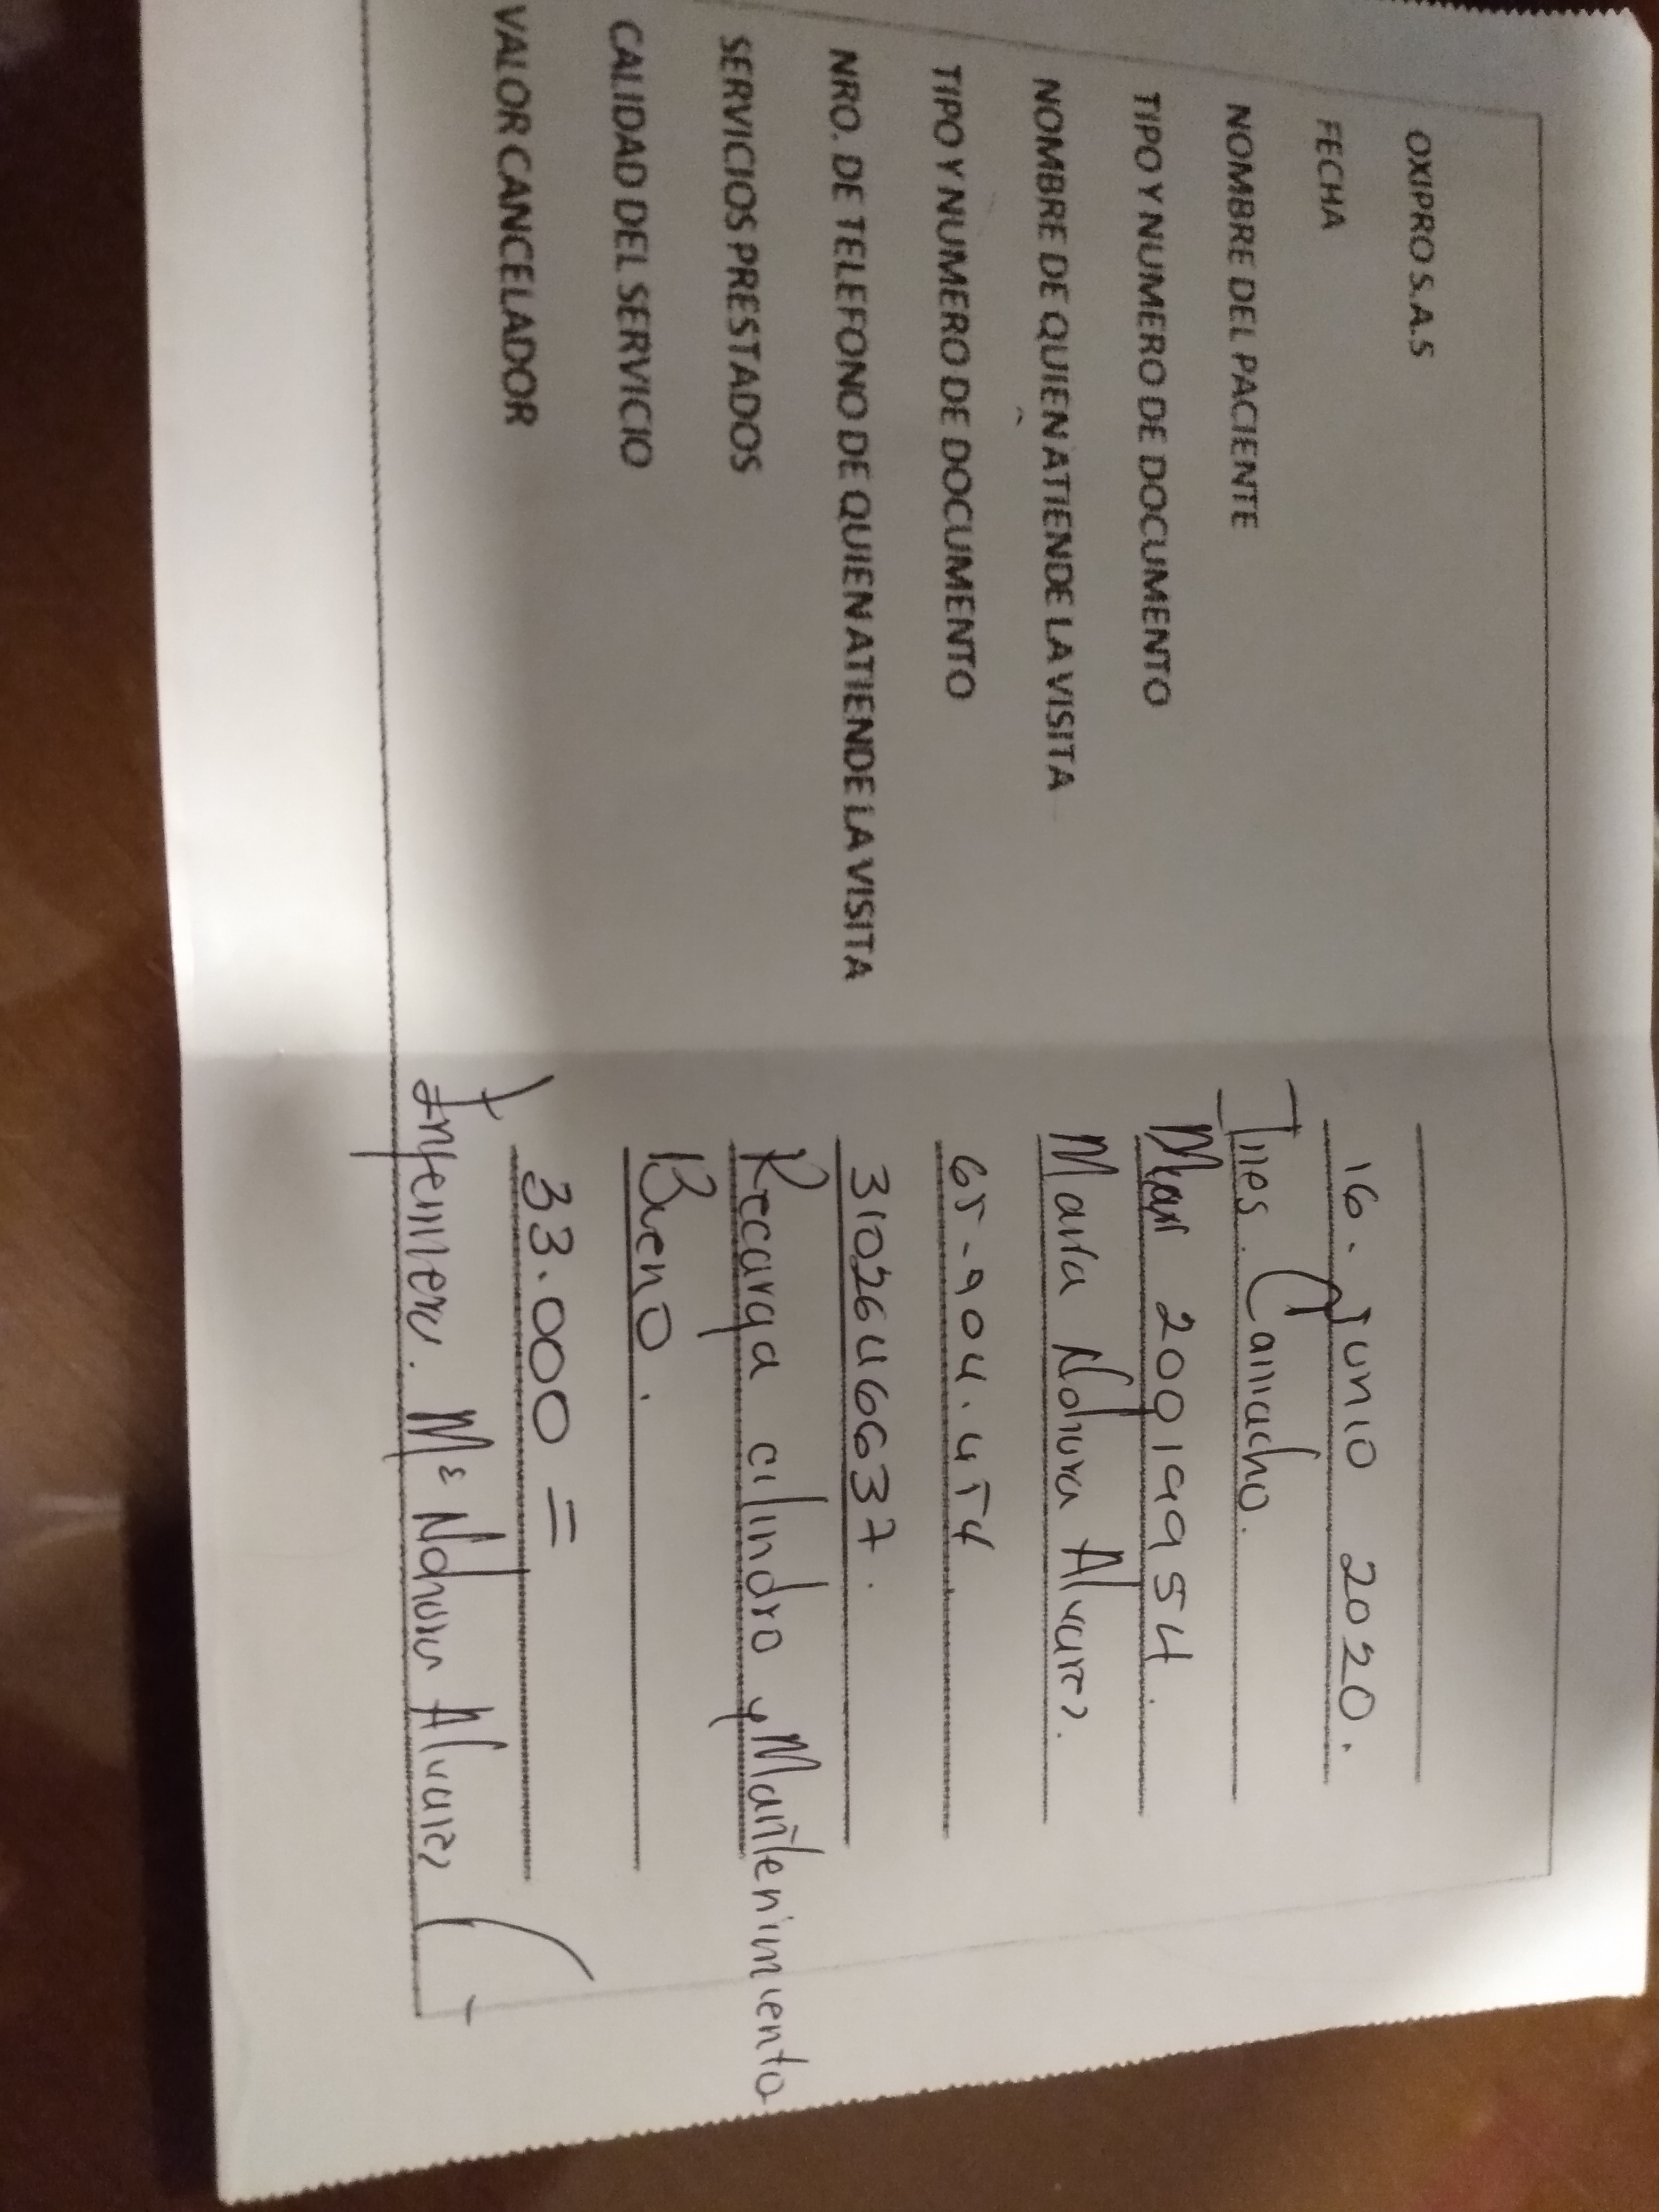 OXIPRO S.A.S
FECHA 16. Junio 2020.
NOMBRE DEL PACIENTE Ines. Camacho.
TIPO Y NUMERO DE DOCUMENTO 20019954.
NOMBRE DE QUIEN ATIENDE LA VISITA Maria Nohora Alvarez.
TIPO Y NUMERO DE DOCUMENTO 65-904.454.
NRO. DE TELEFONO DE QUIEN ATIENDE LA VISITA 3102646637.
SERVICIOS PRESTADOS Recarga cilindro y Mantenimiento
CALIDAD DEL SERVICIO Bueno.
VALOR CANCELADOR 33.000 =
Enfermera. Mª Nohora Alvarez